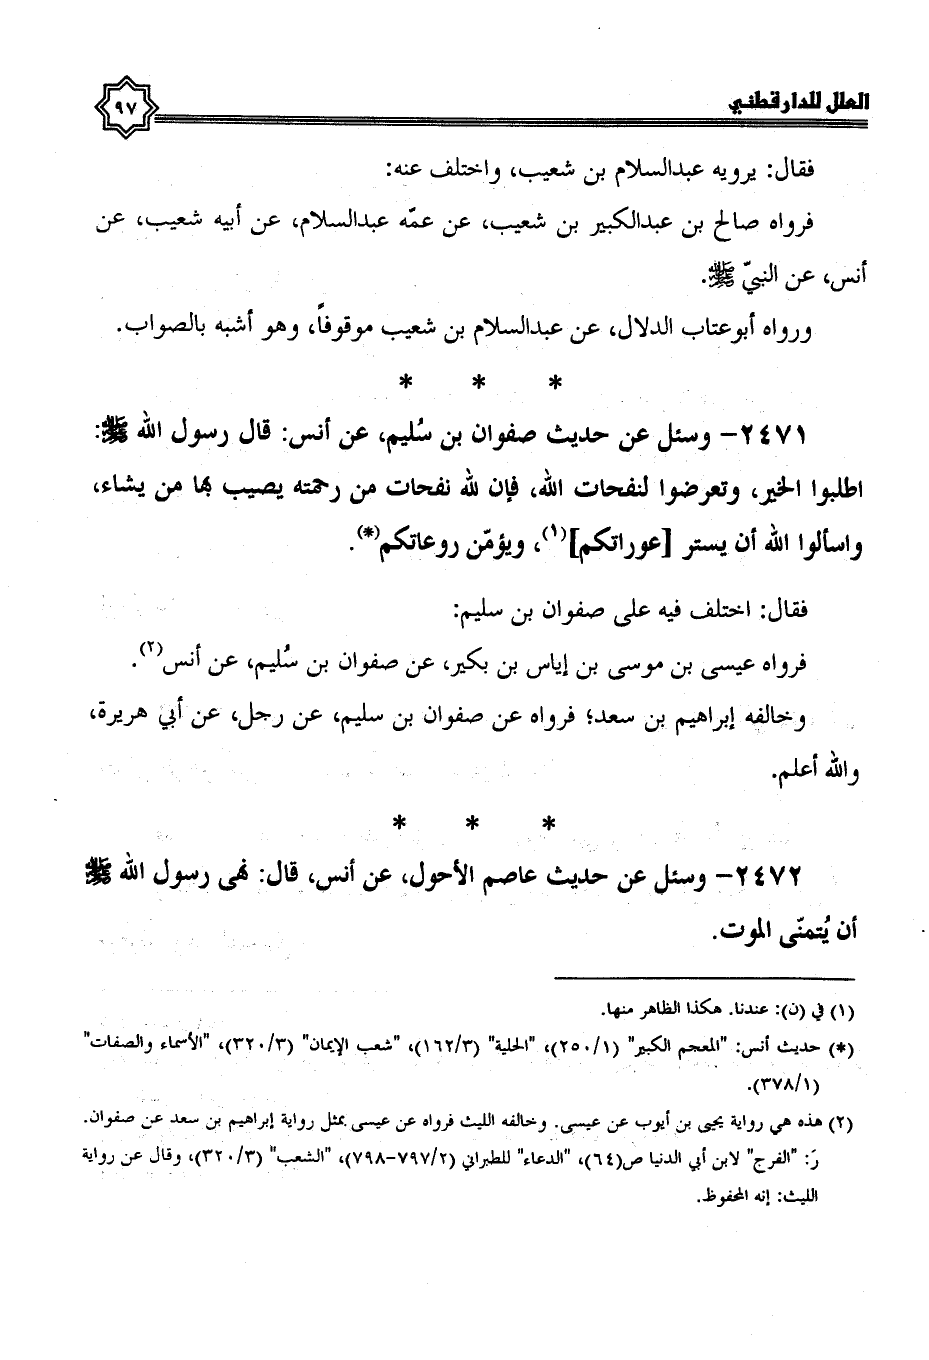 العلل للدارقطني
٩٧
فقال: يرويه عبدالسلام بن شعيب، واختلف عنه:
فرواه صالح بن عبدالكبير بن شعيب، عن عمّه عبدالسلام، عن أبيه شعيب، عن
أنس، عن النبيّ ﷺ.
ورواه أبوعتاب الدلال، عن عبدالسلام بن شعيب موقوفاً، وهو أشبه بالصواب.
* * *
٢٤٧١- وسئل عن حديث صفوان بن سُليم، عن أنس: قال رسول الله ﷺ:
اطلبوا الخير، وتعرضوا لنفحات الله، فإن لله نفحات من رحمته يصيب بها من يشاء،
واسألوا الله أن يستر [عوراتكم](١)، ويؤمّن روعاتكم(*).
فقال: اختلف فيه على صفوان بن سليم:
فرواه عيسى بن موسى بن إياس بن بكير، عن صفوان بن سُليم، عن أنس(٢).
وخالفه إبراهيم بن سعد؛ فرواه عن صفوان بن سليم، عن رجل، عن أبي هريرة،
والله أعلم.
* * *
٢٤٧٢- وسئل عن حديث عاصم الأحول، عن أنس، قال: نهى رسول الله ﷺ
أن يُتمنّى الموت.
(١) في (ن): عندنا. هكذا الظاهر منها.
(*) حديث أنس: "المعجم الكبير" (٢٥٠/١)، "الحلية" (١٦٢/٣)، "شعب الإيمان" (٣٢٠/٣)، "الأسماء والصفات"
(٣٧٨/١).
(٢) هذه هي رواية يحيى بن أيوب عن عيسى. وخالفه الليث فرواه عن عيسى بمثل رواية إبراهيم بن سعد عن صفوان.
رَ: "الفرج" لابن أبي الدنيا ص(٦٤)، "الدعاء" للطبراني (٧٩٧/٢-٧٩٨)، "الشعب" (٣٢٠/٣)، وقال عن رواية
الليث: إنه المحفوظ.